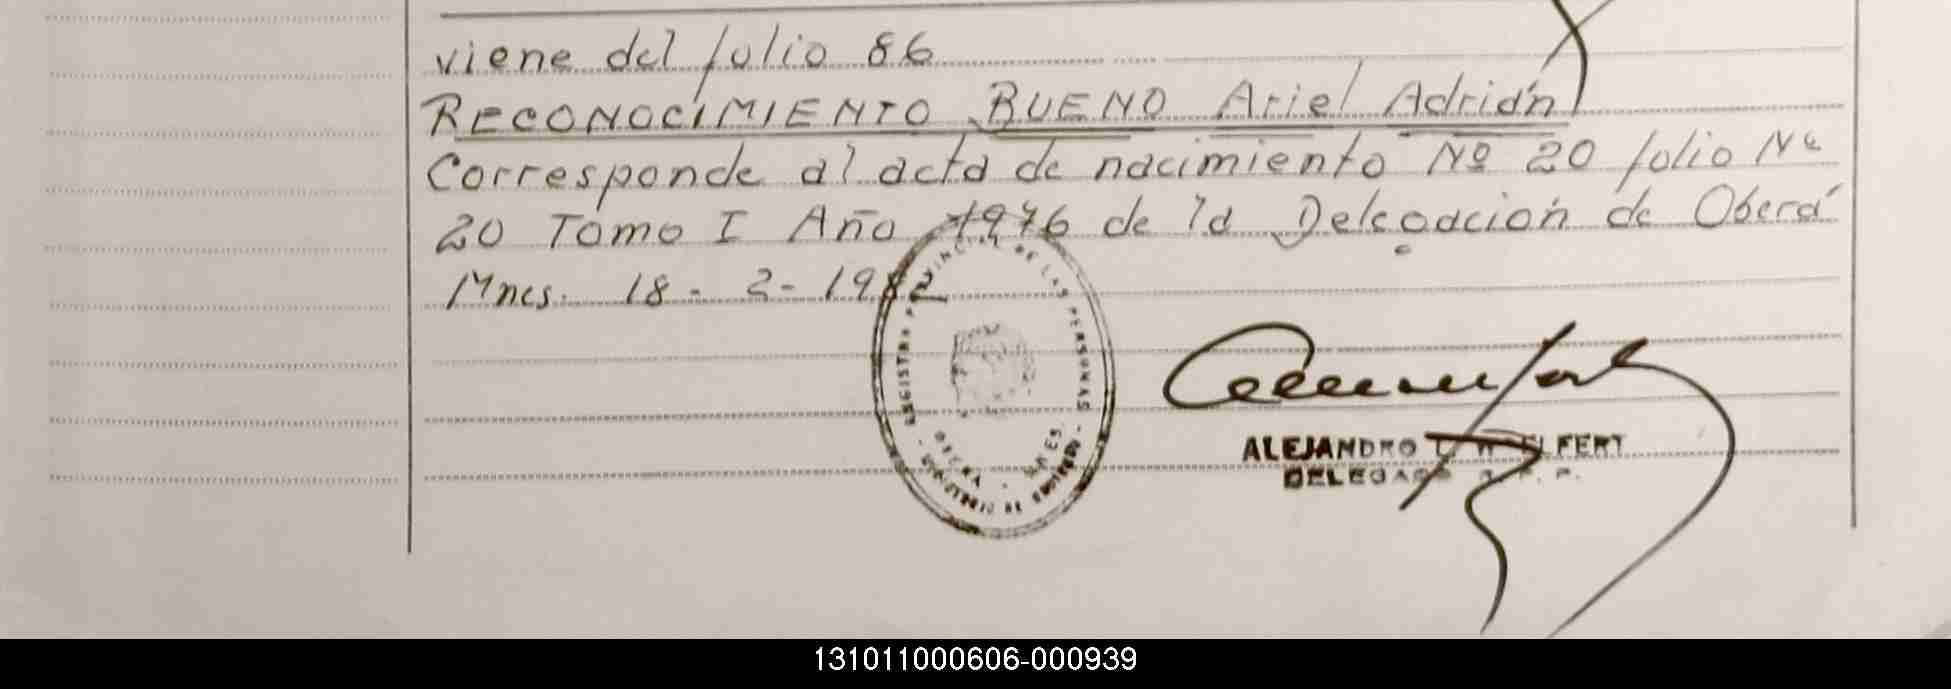 viene del folio 86
RECONOCIMIENTO BUENO Ariel Adrián
Corresponde al acta de nacimiento Nº 20 folio Nº
20 Tomo I Año 1976 de la Delegación de Oberá
Mnes. 18 - 2 - 1982
REGISTRO PROVINCIAL DE LAS PERSONAS
OBERA - MNES.
MINISTERIO DE GOBIERNO
ALEJANDRO
DELEGADO R. P. P.
131011000606-000939